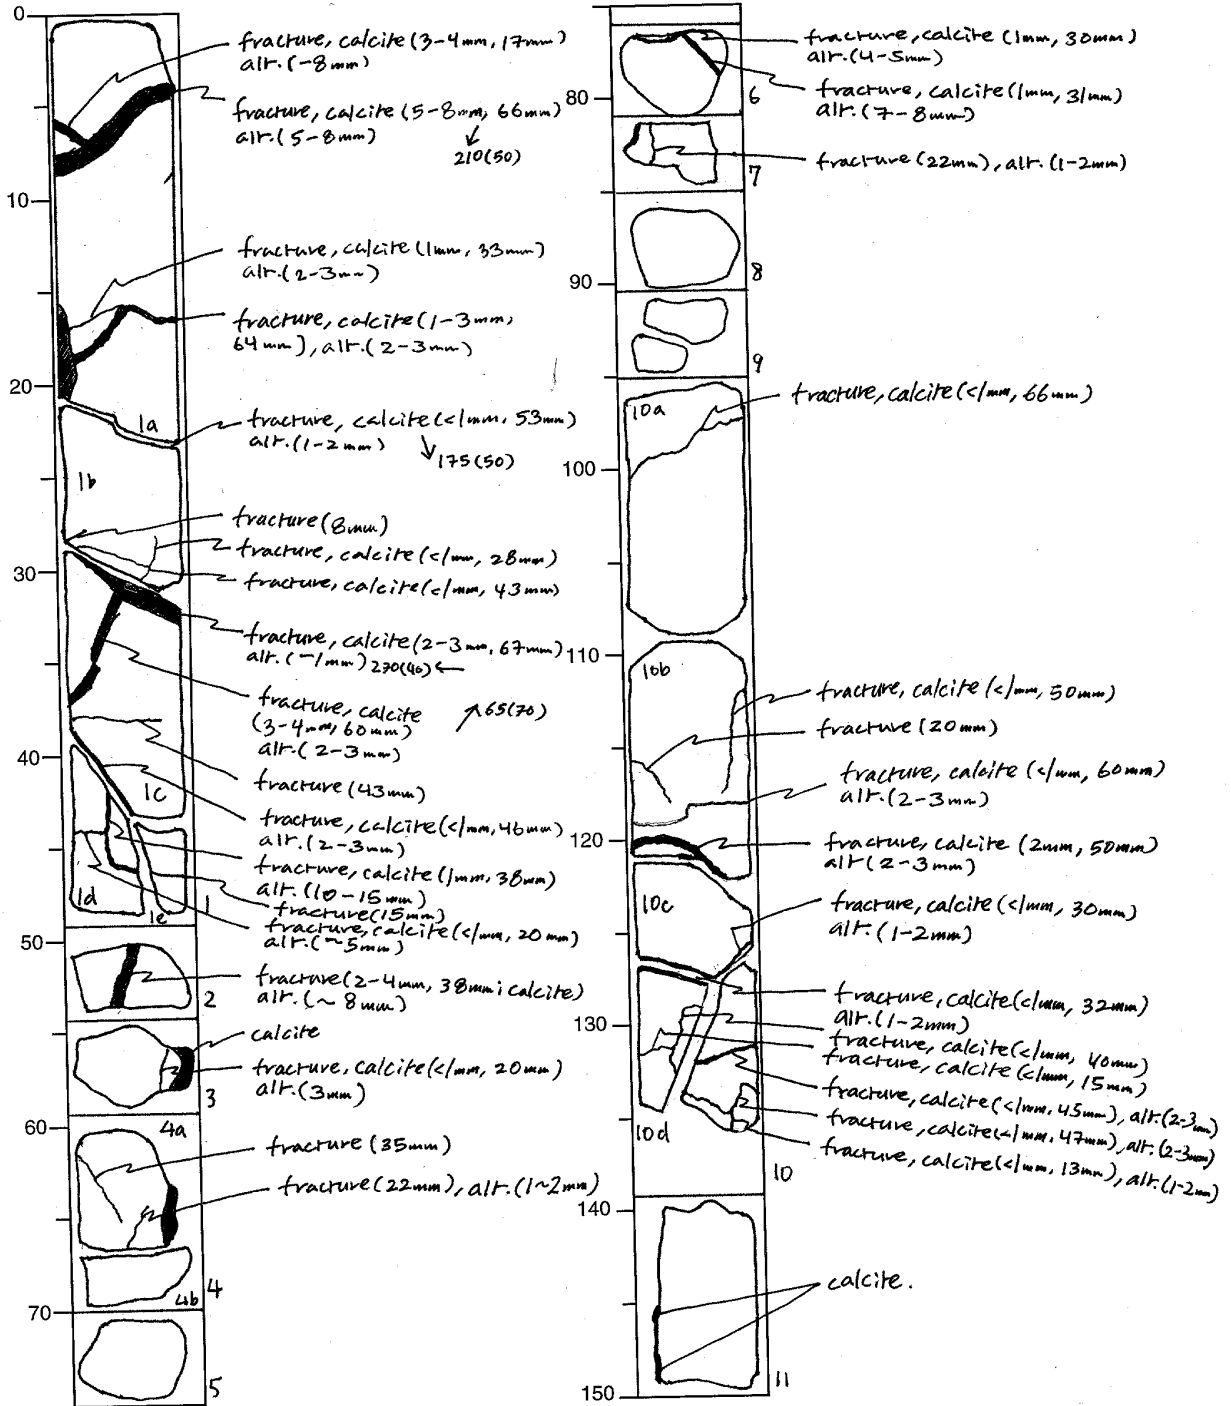 0
fracture, calcite (3-4mm, 17mm)
alt. (~8mm)
fracture, calcite (5-8mm, 66mm)
alt. (5-8mm)
↙
210(50)
10
fracture, calcite (1mm, 33mm)
alt. (2-3mm)
fracture, calcite (1-3mm,
64mm), alt. (2-3mm)
20
1a
fracture, calcite (<1mm, 53mm)
alt. (1-2mm)
↓ 175(50)
1b
fracture (8mm)
fracture, calcite (<1mm, 28mm)
30
fracture, calcite (<1mm, 43mm)
fracture, calcite (2-3mm, 67mm)
alt. (~1mm) 270(40) ←
fracture, calcite
(3-4mm, 60mm)
alt. (2-3mm)
↗ 65(70)
40
1c
fracture (43mm)
fracture, calcite (<1mm, 46mm)
alt. (2-3mm)
fracture, calcite (1mm, 38mm)
alt. (10-15mm)
1d
1e
1
fracture (15mm)
fracture, calcite (<1mm, 20mm)
alt. (~5mm)
50
fracture (2-4mm, 38mm; calcite)
alt. (~8mm)
2
calcite
fracture, calcite (<1mm, 20mm)
alt. (3mm)
3
60
4a
fracture (35mm)
fracture (22mm), alt. (1~2mm)
4
4b
70
5
fracture, calcite (1mm, 30mm)
alt. (4-5mm)
80
6
fracture, calcite (1mm, 31mm)
alt. (7-8mm)
fracture (22mm), alt. (1-2mm)
7
8
90
9
10a
fracture, calcite (<1mm, 66mm)
100
110
10b
fracture, calcite (<1mm, 50mm)
fracture (20mm)
fracture, calcite (<1mm, 60mm)
alt. (2-3mm)
120
fracture, calcite (2mm, 50mm)
alt (2-3mm)
10c
fracture, calcite (<1mm, 30mm)
alt. (1-2mm)
fracture, calcite (<1mm, 32mm)
130
alt. (1-2mm)
fracture, calcite (<1mm, 40mm)
fracture, calcite (<1mm, 15mm)
fracture, calcite (<1mm, 45mm), alt. (2-3mm)
10d
fracture, calcite (<1mm, 47mm), alt. (2-3mm)
fracture, calcite (<1mm, 13mm), alt. (1-2mm)
10
140
calcite.
11
150